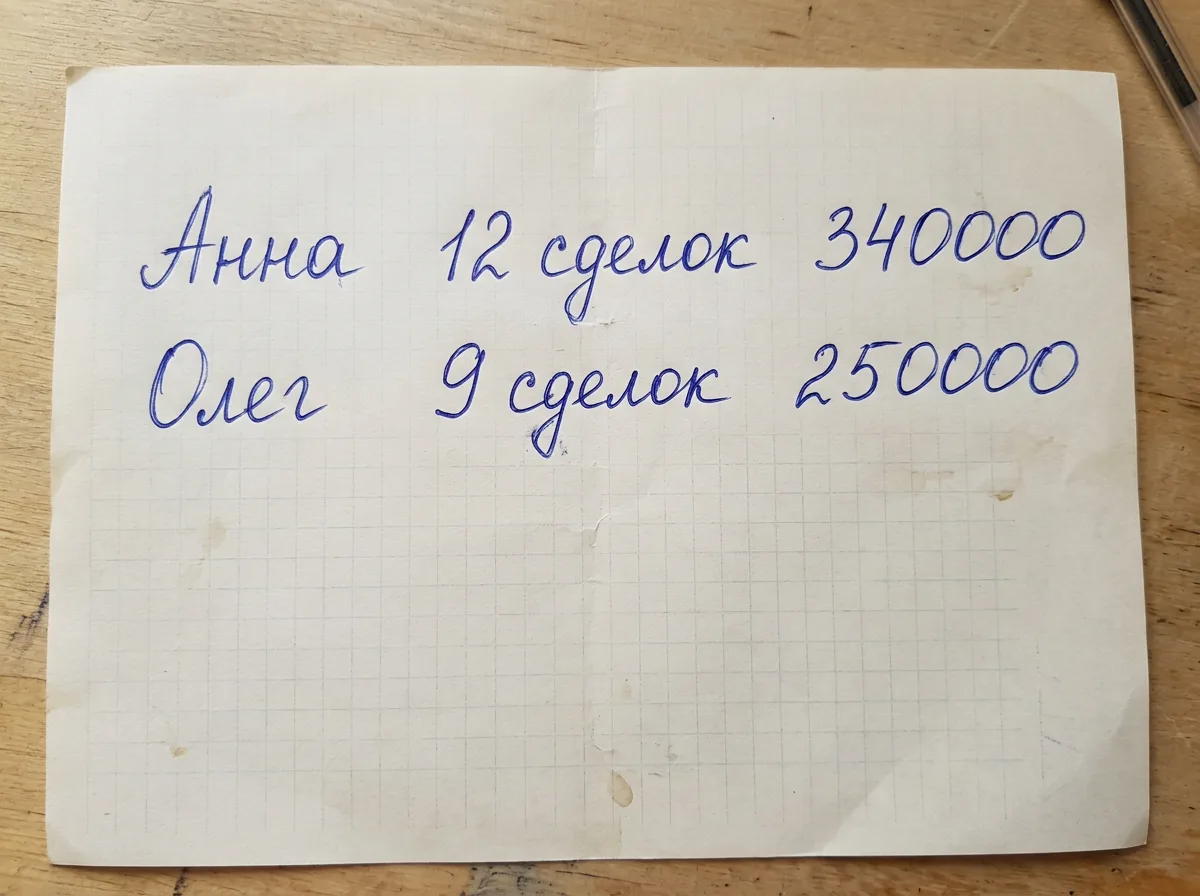 Анна 12 сделок 340000
Олег 9 сделок 250000